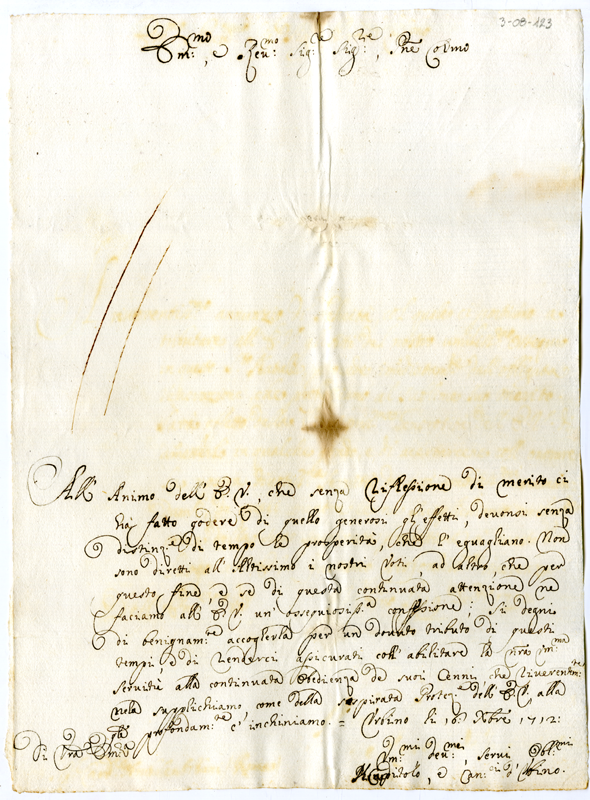 3-08-123
Em:mo, e Rev:mo Sig:re Sig:re, Pne Colmo
All' Animo dell' E. V., che senza riflessione di merito ci
hà fatto godere di quello generosi gl'effetti, devonsi senza
distinz:e di tempo le prosperità, che l' eguagliano. Non
sono diretti all' Altissimo i nostri Voti, ad altro che per
questo fine, e se di questa continuata attenzione ne
facciamo all' E. V. un' ossequiosiss:a confessione; si degni
di benignam:te accoglierla per un dovuto tributo di questi
tempi e di renderci assicurati coll' abilitare la nrã um:ma
servitù alla continuata obedienza de suoi Cenni, che riverentem:te
nela supplichiamo come della sospirata Protez:e dell' E. V., alla
quale profondam:te c' inchiniamo. = Urbino li 16: Xbre 1712:
Di Vra Em:za
Um:mi dev:mi, servi Obl:mi
Il Capitolo, e Can:ci d' Urbino.